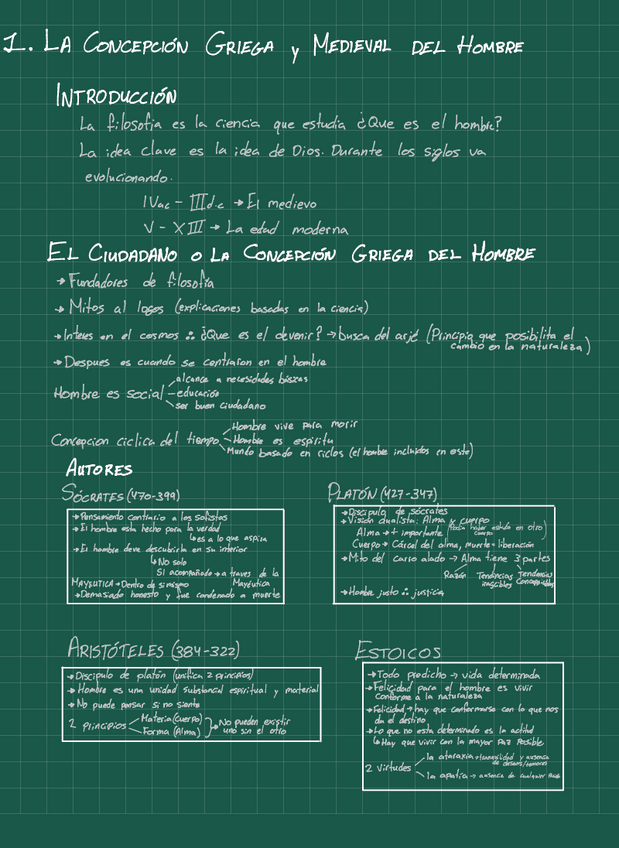 1. LA CONCEPCIÓN GRIEGA y MEDIEVAL DEL HOMBRE
INTRODUCCIÓN
La filosofía es la ciencia que estudia ¿Que es el hombre?
La idea clave es la idea de Dios. Durante los siglos va
evolucionando.
IVac - IIId.c → El medievo
V - XIII → La edad moderna
EL CIUDADANO O LA CONCEPCIÓN GRIEGA DEL HOMBRE
→ Fundadores de filosofía
→ Mitos al logos (explicaciones basadas en la ciencia)
→ Interes en el cosmos ∴ ¿Que es el devenir? → busca del arjé (Principio que posibilita el
cambio en la naturaleza)
→ Despues es cuando se centraron en el hombre
alcance a necesidades básicas
Hombre es social — educación
ser buen ciudadano
Hombre vive para morir
Concepcion ciclica del tiempo — Hombre es espiritu
Mundo basado en ciclos (el hombre incluidos en este)
AUTORES
SÓCRATES (470-399)
→ Pensamiento contrario a los sofistas
→ El hombre esta hecho para la verdad
↳ es a lo que aspira
→ El hombre deve descubrirla en su interior
↳ No solo
Si acompañado → a traves de la
Mayéutica
MAYEUTICA → Dentro de si mismo
→ Demasiado honesto y fue condenado a muerte
PLATÓN (427-347)
→ Discipulo de sócrates
→ Visión dualista: Alma y cuerpo
Alma → + importante (Podia haber estado en otro cuerpo)
Cuerpo → Cárcel del alma, muerte = liberación
→ Mito del carro alado → Alma tiene 3 partes
Razón Tendencias irascibles Tendencias
→ Hombre justo ∴ justicia
ARISTÓTELES (384-322)
→ Discipulo de platón (unifica 2 principios)
→ Hombre es una unidad substancial espiritual y material
→ No puede pensar si no siente
2 principios Materia (cuerpo) Forma (Alma) → No pueden existir
uno sin el otro
ESTOICOS
→ Todo predicho → vida determinada
→ Felicidad para el hombre es vivir
conforme a la naturaleza
→ Felicidad → hay que conformarse con lo que nos
da el destino
→ Lo que no esta determinado es la actitud
↳ Hay que vivir con la mayor paz posible
2 virtudes
la ataraxia → tranquilidad y ausencia
de deseos/temores
la apatia → ausencia de cualquier